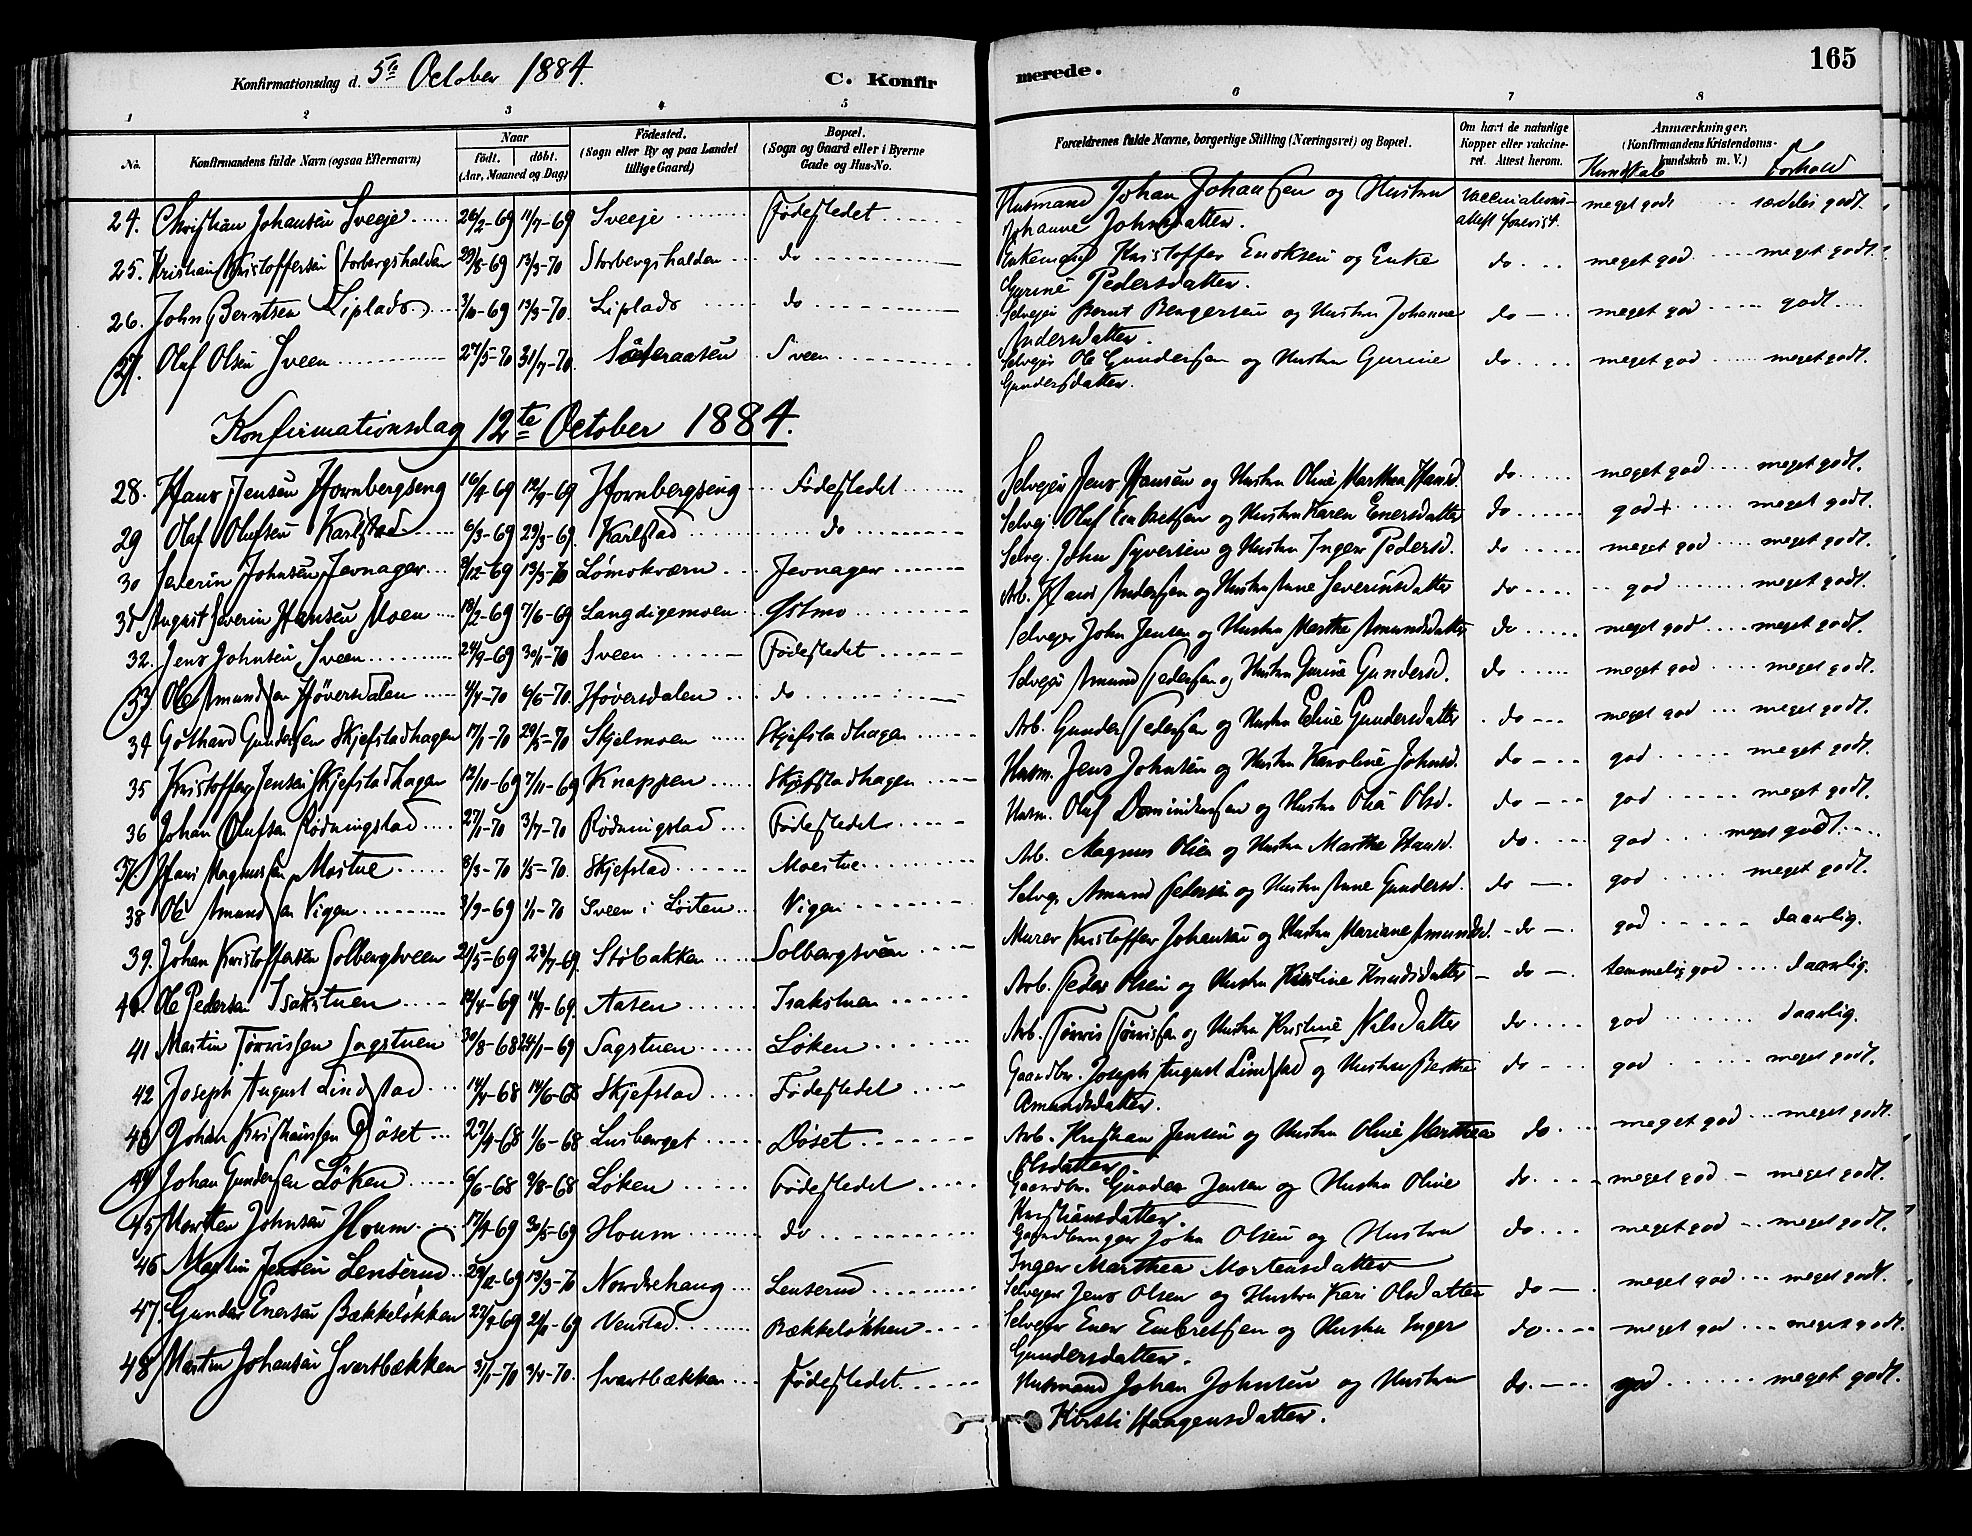 165
Konfirmationsdag d. 5te October 1884.
C. Konfirmerede.
1 2 3 4 5 6 7 8
No. Konfirmandens fulde Navn (ogsaa Efternavn) Naar födt. döbt. (Aar, Maaned og Dag) Födested. (Sogn eller By og paa Landet tillige Gaard) Bopæl. (Sogn og Gaard eller i Byerne Gade og Hus-No. Forældrenes fulde Navne, borgerlige Stilling (Næringsvei) og Bopæl. Om havt de naturlige Kopper eller vakcineret. Attest herom. Anmærkninger. (Konfirmandens Kristendomskundskab m. V.) Kundskab Forhold
24. Christian Johansen Sveeje 26/2-69 11/7-69 Sveeje Födestedet Husmand Johan Johansen og Hustru Johanne Johnsdatter. Vaccinationsattest forevist. meget godt særdeles godt.
25. Kristian Kristoffersen Storbergshalden 29/8-69 13/3-70 Storbergshalden do Enkemand Kristoffer Eriksen og Enke Gurine Pedersdatter. do meget god meget godt.
26. John Berntsen Liplads 3/10-69 13/3-70. Liplads do Selveier Bernt Bengersen og Hustru Johanne Andersdatter. do meget god godt
27. Olaf Olsen Sveen 27/5-70 31/7-70. Sæteraasen Sveen Selveier Ole Gundersen og Hustru Gurine Gundersdatter. do meget god meget godt.
Konfirmationsdag 12te October 1884.
28. Hans Jensen Hornbergseng 16/4-69 12/9-69 Hornbergseng Födestedet Selveier Jens Hansen og Hustru Oline Marthea Hansd. do meget god meget godt.
29 Olaf Olufsen Karlstad 6/3-69 29/3-69. Karlstad do Selvej. Oluf Embretsen og Hustru Karen Enersdatter do god+ meget godt.
30 Severin Johnsen Jevnager 9/12-69 13/3-70 Lömokværn Jevnager Selvej. John Syversen og Hustru Inger Pedersd. do meget god meget godt.
31 August Severin Hansen Moen 18/2-69 7/6-69 Langdigemoen Østmo Arb. Hans Andersen og Hustru Anne Severinsdatter do god meget godt.
32. Jens Johnsen Sveen 24/9-69 30/1-70 Sveen Födestedet Selveier John Jensen og Hustru Marthe Amundsdatter do meget god meget godt.
33 Ole Amundsen Höversdalen 4/4-70 6/6-70. Höversdalen do Selveier Amund Pedersen og Hustru Gurine Gundersd. do meget god meget godt.
34 Gothard Gundersen Skjefstadhagen 17/1-70 29/5-70 Skjelmoen Skjefstadhagen Arb. Gunder Pedersen og Hustru Eline Gundersdatter do meget god meget godt.
35 Kristoffer Jensen Skjefstadhagen 12/10-69 7/11-69 Knappen Skjefstadhagen Husm. Jens Johnsen og Hustru Karoline Johnsd. do god meget godt.
36 Johan Olufsen Rödningstad 27/1-70 3/7-70 Rödningstad Födestedet Husm. Oluf og Hustru Olia Olsd. do god meget godt.
37. Hans Magnussen Mostue 8/3-70 1/5-70. Skjefstad Moestue Arb. Magnus Olsen og Hustru Marthe Hansd. do god meget godt.
38 Ole Amundsen Vigen 3/9-69 1/1-70 Sveen i Löiten Vigen Selvej. Amund Pedersen og Hustru Anne Gundersd. do god meget godt.
39. Johan Kristoffersen Solbergsveen 21/5-69 23/7-69. Stöbakken Solbergsveen Murer Kristoffer Johansen og Hustru Mariane Amundsd. do god daarlig.
40. Ole Pedersen Isakstuen 12/4-69 11/9-69. Aasen Isakstuen Arb. Peder Olsen og Hustru Karoline Knudsdatter do temmelig god daarlig.
41 Martin Törrissen Sagstuen 30/8-68 24/1-69 Sagstuen Löken Arb. Törris Törrissen og Hustru Kristine Nilsdatter do god daarlig.
42 Joseph August Lindstad 14/4-68 14/6-68 Skjefstad Födestedet Gaardbr. Joseph August Lindstad og Hustru Berthe Amundsdatter. do god meget godt.
43 Johan Kristiansen Döset 27/4-68 1/6-68 Lusberget Döset Arb. Kristian Jensen og Hustru Oline Marthea Olsdatter do meget god meget godt.
44 Johan Gundersen Löken 6/6-68 2/8-68 Löken Födestedet Gaardbr. Gunder Jensen og Hustru Oline Kristiansdatter. do meget god meget godt.
45 Morten Johnsen Houm 17/4-69 30/5-69 Houm do Gaardbruger John Olsen og Hustru Inger Marthea Mortensdatter do meget god meget godt.
46 Martin Jensen Lenserud 29/12-69 13/3-70 Nordrehaug Lenserud Selveier Jens Olsen og Hustru Kari Olsdatter do meget god meget godt.
47. Gunder Enersen Bækkelökken 27/9-69 21/11-69 Venstad Bækkelökken Selveier Ener Embretsen og Hustru Inger Gundersdatter. do meget god meget godt.
48 Martin Johansen Svartbækken 31/1-70 3/4-70. Svartbækken Födestedet Husmand Johan Johnsen og Hustru Kirsti Haagensdatter. do. god meget godt.